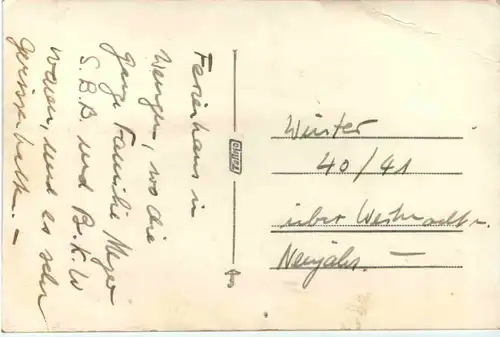 Ferienhaus in
Wengen, wo die
ganze Familie Meyer
S.B.B. und B.K.W
waren, und es sehr
Winter
40/41
über Weihnacht u.
Neujahr. —